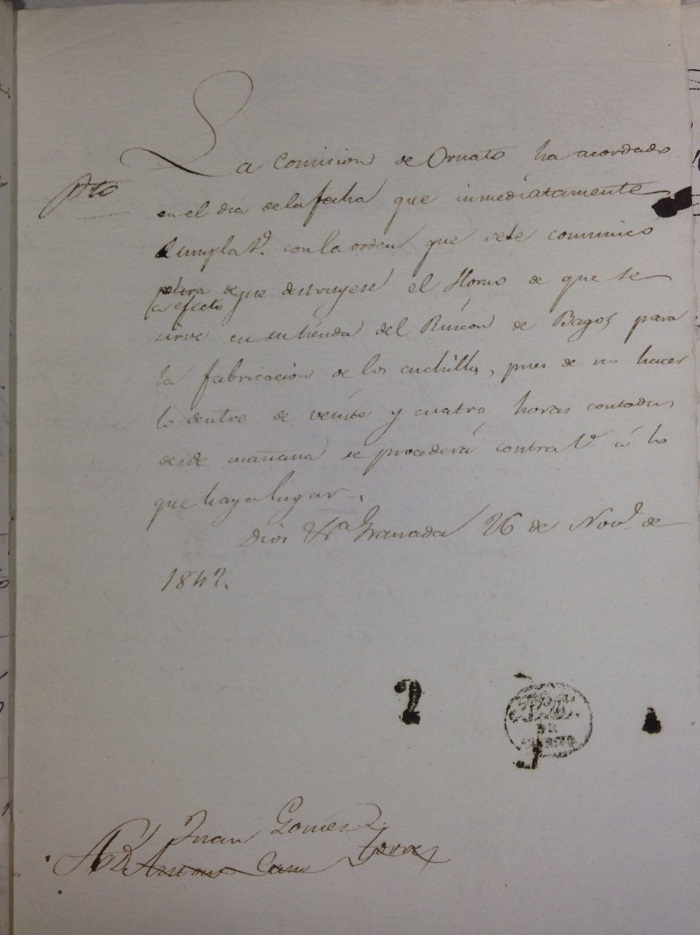 La Comision de Ornato ha acordado
en el dia de la fecha que inmediatamente
cumpla V. con la orden que se le comunicó
para que destruyese el Horno de que se
a efecto
sirve en su tienda del Rincon de Bagos para
la fabricacion de los cuchillos, pues de no hacer
lo dentro de veinte y cuatro horas contadas
desde mañana se procederá contra V. á lo
que haya lugar.
Dios Granada 26 de Nov. de
1842.
2
DE
Juan Gomez